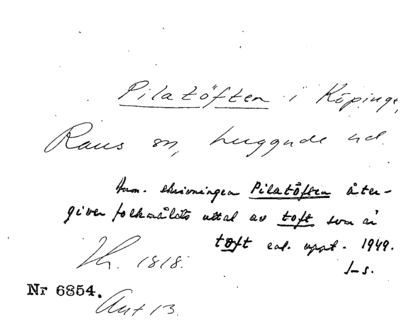 Pilatöften i Köpinge,
Raus sn, Luggude hd.
Anm. skrivningen Pilatöften åter-
giver folkmålets uttal av toft som är
tøft enl. uppt. 1949.
J-s.
Lh. 1818.
Nr 6854.
Ant 13.